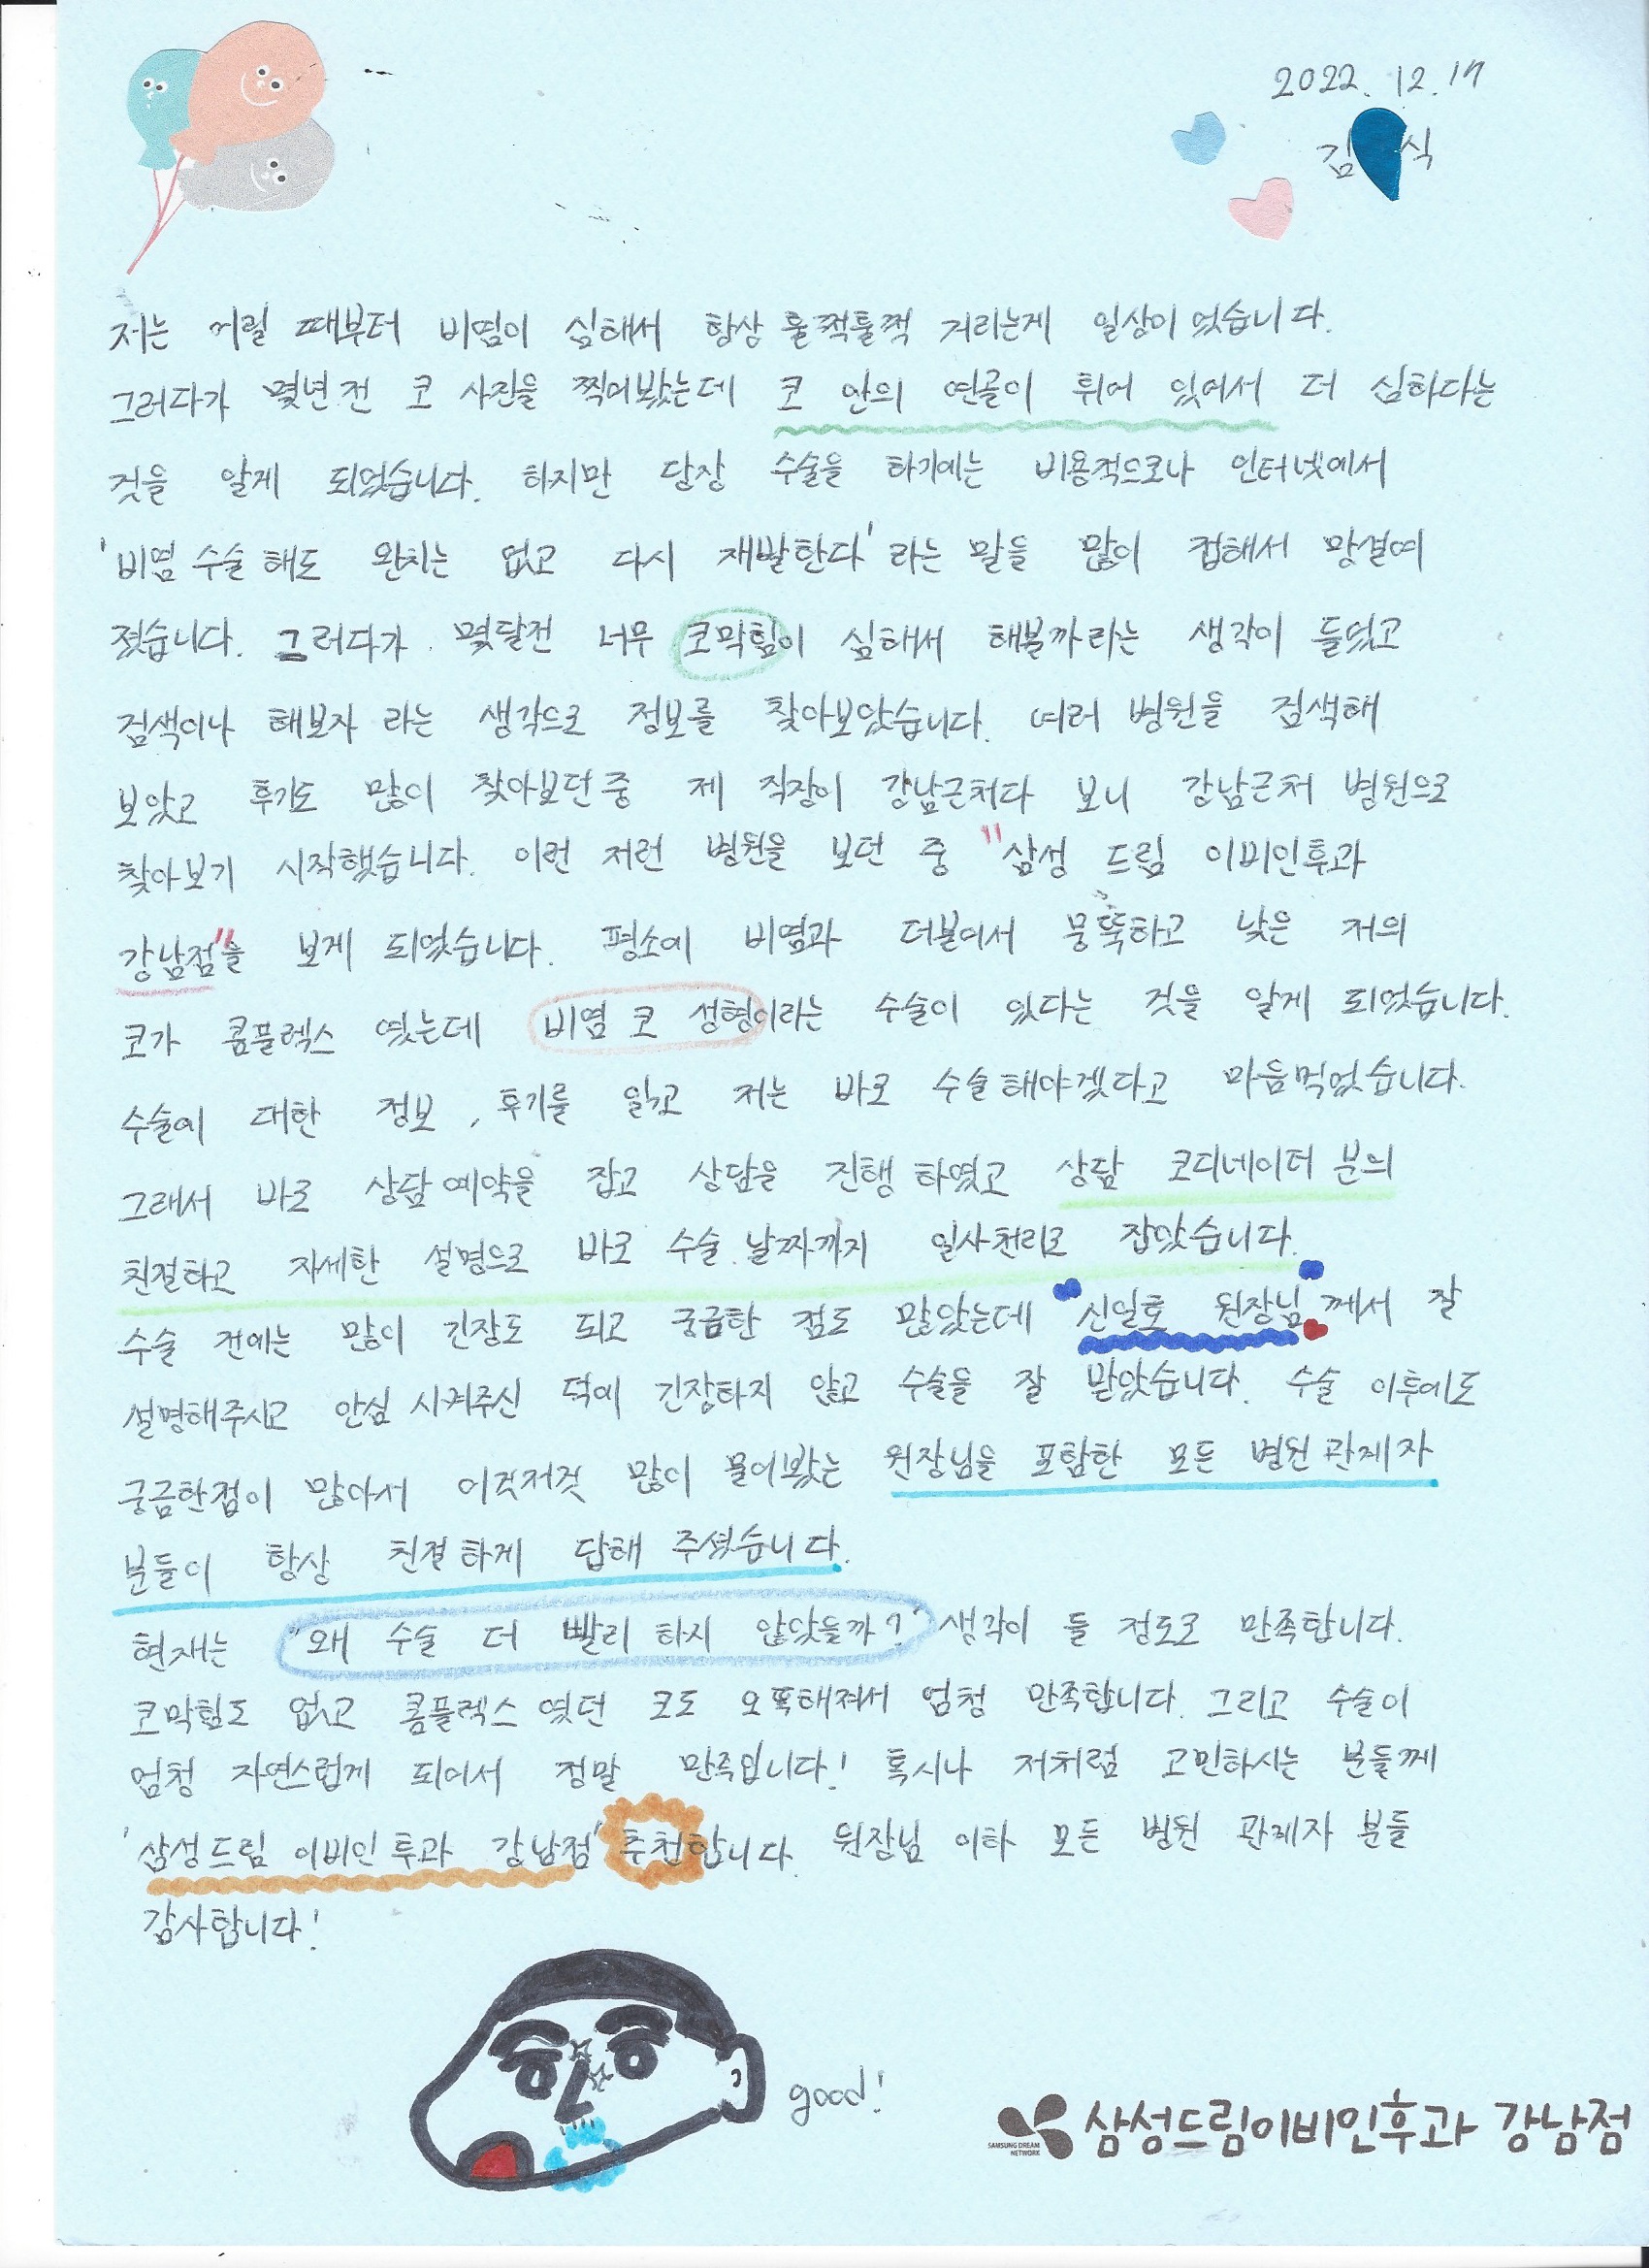 2022. 12. 17
김 식
저는 어릴 때부터 비염이 심해서 항상 훌쩍훌쩍 거리는게 일상이 었습니다.
그러다가 몇년전 코 사진을 찍어봤는데 코 안의 연골이 튀어 있어서 더 심하다는
것을 알게 되었습니다. 하지만 당장 수술을 하기에는 비용적으로나 인터넷에서
'비염 수술 해도 완치는 없고 다시 재발한다' 라는 말을 많이 접해서 망설여
졌습니다. 그러다가 몇달전 너무 코막힘이 심해서 해볼까 라는 생각이 들었고
검색이나 해보자 라는 생각으로 정보를 찾아보았습니다. 여러 병원을 검색해
보았고 후기도 많이 찾아보던 중 제 직장이 강남근처다 보니 강남근처 병원으로
찾아보기 시작했습니다. 이런 저런 병원을 보던 중 "삼성 드림 이비인후과
강남점"을 보게 되었습니다. 평소에 비염과 더불어서 뭉뚝하고 낮은 저의
코가 콤플렉스 였는데 비염 코 성형이라는 수술이 있다는 것을 알게 되었습니다.
수술에 대한 정보, 후기를 읽고 저는 바로 수술해야겠다고 마음먹었습니다.
그래서 바로 상담예약을 잡고 상담을 진행 하였고 상담 코디네이터 분의
친절하고 자세한 설명으로 바로 수술 날짜까지 일사천리로 잡았습니다.
수술 전에는 많이 긴장도 되고 궁금한 점도 많았는데 신일호 원장님께서 잘
설명해주시고 안심 시켜주신 덕에 긴장하지 않고 수술을 잘 받았습니다. 수술 이후에도
궁금한점이 많아서 이것저것 많이 물어봤는 원장님을 포함한 모든 병원 관계자
분들이 항상 친절하게 답해 주셨습니다.
현재는 "왜 수술 더 빨리 하지 않았을까?" 생각이 들 정도로 만족합니다.
코막힘도 없고 콤플렉스 였던 코도 오똑해져서 엄청 만족합니다. 그리고 수술이
엄청 자연스럽게 되어서 정말 만족입니다! 혹시나 저처럼 고민하시는 분들께
'삼성드림 이비인후과 강남점' 추천합니다. 원장님 이하 모든 병원 관계자 분들
감사합니다!
good!
SAMSUNG DREAM NETWORK 삼성드림이비인후과 강남점